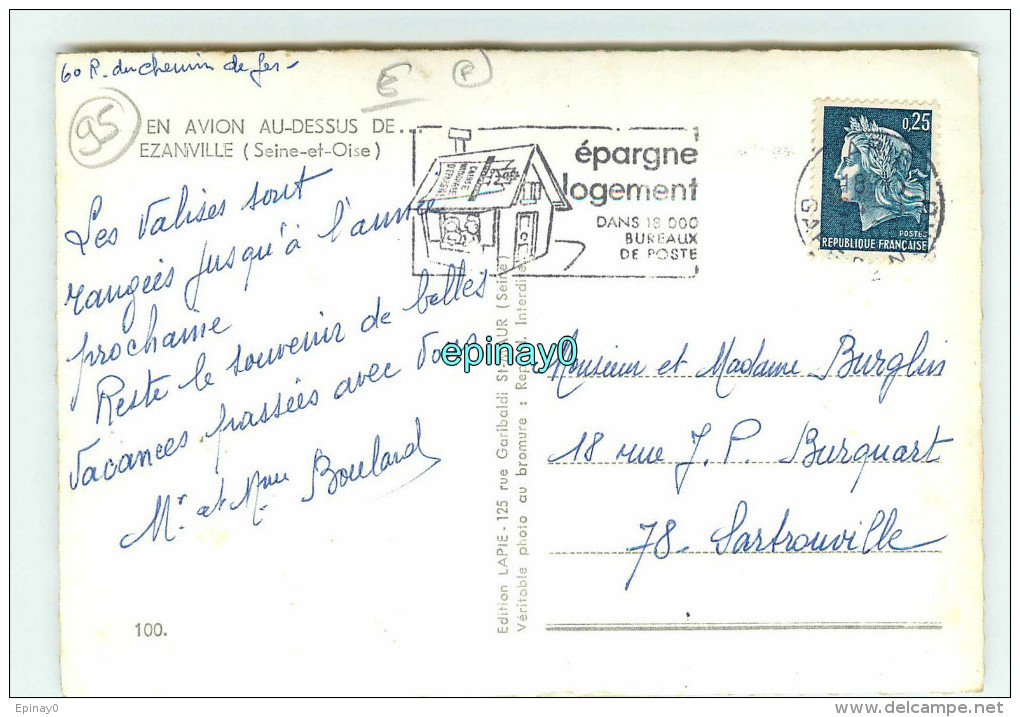 60 R. du chemin de fer -
E
P
95
EN AVION AU-DESSUS DE...
EZANVILLE (Seine-et-Oise)
Les valises sont
rangées jusqu'à l'année
prochaine
Reste le souvenir de belles
vacances passées avec vous
Mr. et Mme Boulard
100.
épargne
logement
DANS 18 000
BUREAUX
DE POSTE
0,25
POSTES
REPUBLIQUE FRANÇAISE
epinay0
Edition LAPIE - 125 rue Garibaldi St-MAUR (Seine)
Véritable photo au bromure : Reprod. Interdite
Monsieur et Madame Burglin
18 rue J. P. Burquart
78 - Sartrouville
Epinay0
www.delcampe.net